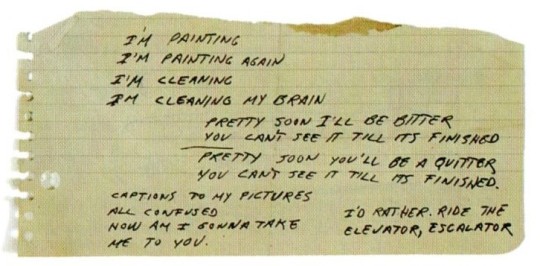 I'M PAINTING
I'M PAINTING AGAIN
I'M CLEANING
I'M CLEANING MY BRAIN
PRETTY SOON I'LL BE BITTER
YOU CAN'T SEE IT TILL ITS FINISHED
PRETTY SOON YOU'LL BE A QUITTER
YOU CAN'T SEE IT TILL ITS FINISHED.
CAPTIONS TO MY PICTURES
ALL CONFUSED
NOW AM I GONNA TAKE
ME TO YOU.
I'D RATHER. RIDE THE
ELEVATOR, ESCALATOR